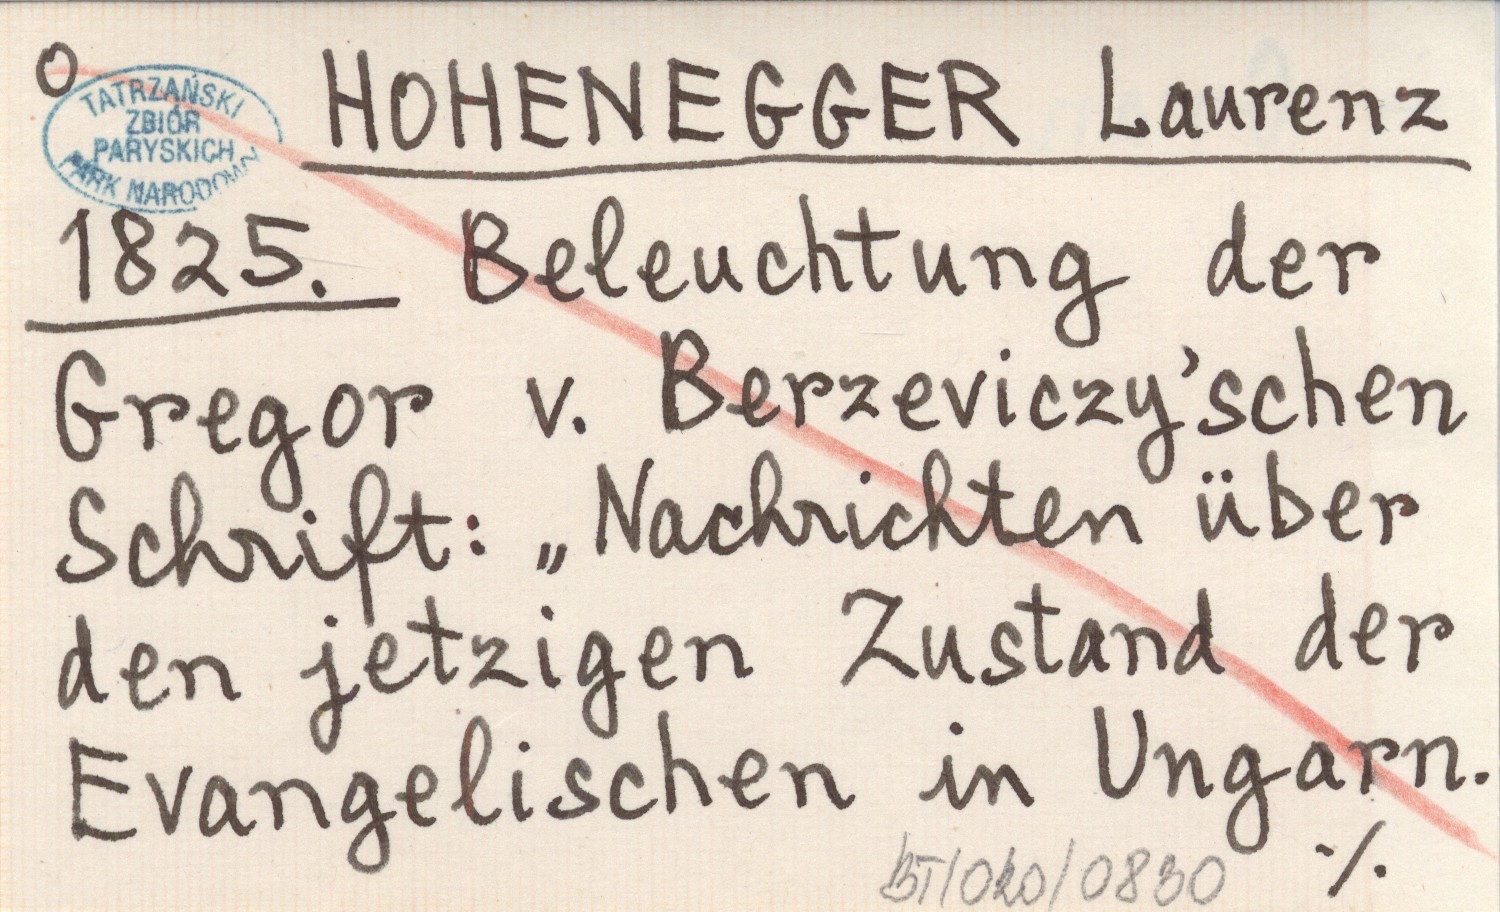 O HOHENEGGER Laurenz
TATRZAŃSKI
ZBIÓR
PARYSKICH
PARK NARODOWY
1825. Beleuchtung der
Gregor v. Berzeviczy'schen
Schrift: „Nachrichten über
den jetzigen Zustand der
Evangelischen in Ungarn.
BT/020/0830 ./.